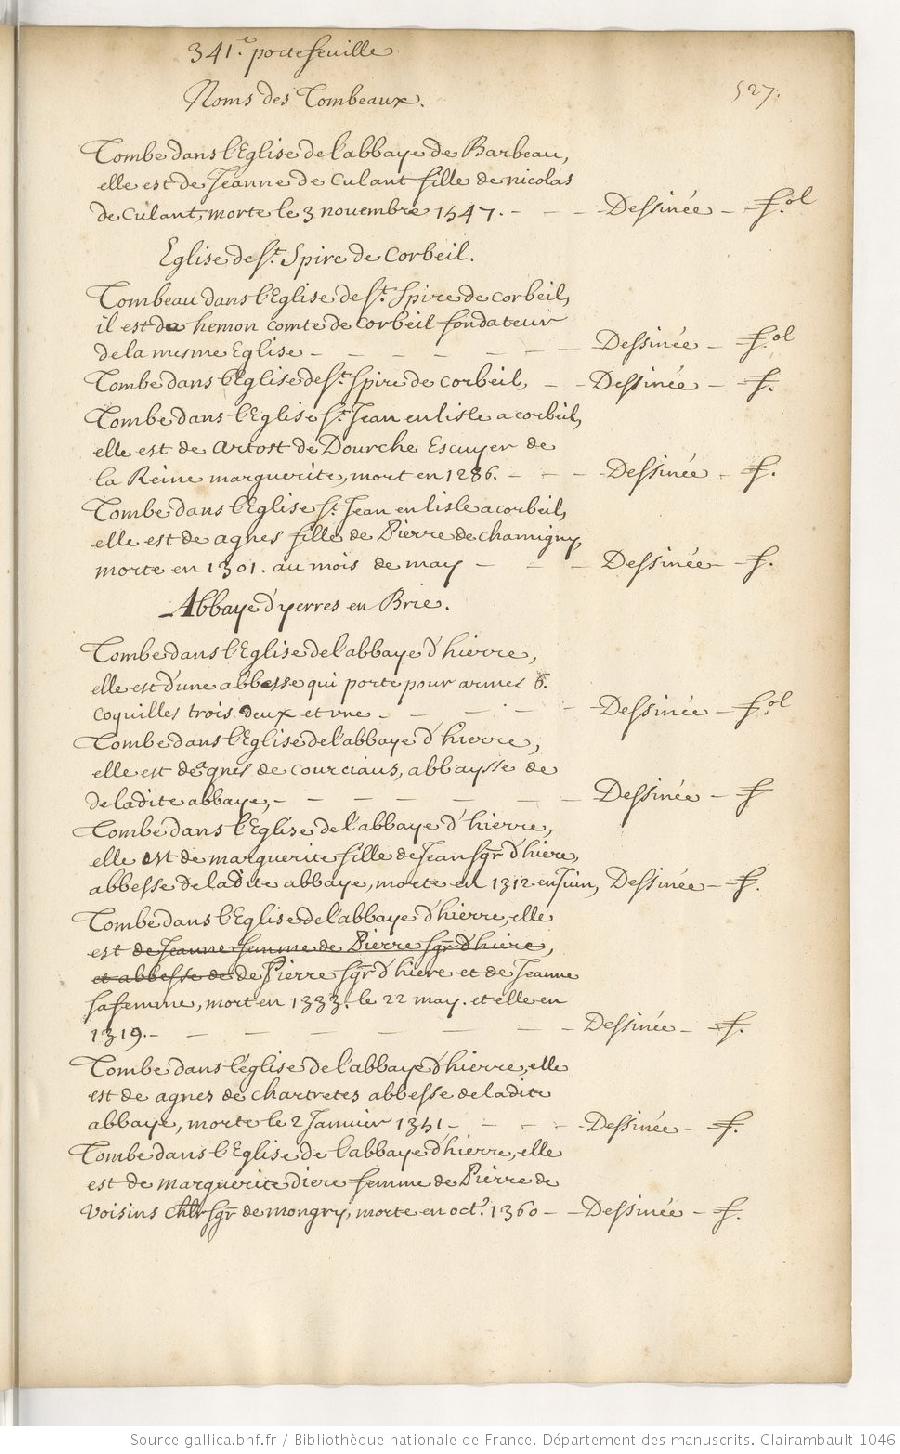 341.e portefeuille
Noms des Tombeaux.
527.
Tombe dans l'Eglise de l'abbaye de Barbeau,
elle est de Jeanne de Culant fille de nicolas
de Culant, morte le 3 novembre 1547. - - - Dessinée - f.ol
Eglise de St. Spire de Corbeil.
Tombeau dans l'Eglise de St. Spire de corbeil,
il est de hemon comte de Corbeil fondateur
de la mesme Eglise - - - - - - Dessinée - f.ol
Tombe dans l'Eglise de St. Spire de corbeil, - - Dessinée - f.
Tombe dans l'Eglise St. Jean en lisle a corbeil,
elle est de Artost de Dourche Escuyer de
la Reine marguerite, mort en 1286. - - - Dessinée - f.
Tombe dans l'Eglise St. Jean en lisle a corbeil,
elle est de agnes fille de Pierre de chamigny,
morte en 1301. au mois de may - - - Dessinée - f.
Abbaye d'yerres en Brie.
Tombe dans l'Eglise de l'abbaye d'hierre,
elle est d'une abbesse qui porte pour armes 6.
coquilles trois deux et une - - - - - Dessinée - f.ol
Tombe dans l'Eglise de l'abbaye d'hierre,
elle est d'Agnes de courciaus, abbaysse de
de ladite abbaye, - - - - - - Dessinée - f
Tombe dans l'Eglise de l'abbaye d'hierre,
elle est de marguerite fille de Jean sgr. d'hiere,
abbesse de ladite abbaye, morte en 1312 en Juin, Dessinée - f.
Tombe dans l'Eglise de l'abbaye d'hierre, elle
est de Jeanne femme de Pierre sgr. d'hiere,
et abbesse de de Pierre sgr d'hiere et de Jeanne
sa femme, mort en 1333. le 22 may. et elle en
1319. - - - - - - - Dessinée - f.
Tombe dans l'église de l'abbaye d'hierre, elle
est de agnes de chartretes abbesse de ladite
abbaye, morte le 2 Janvier 1341 - - - - Dessinée - f.
Tombe dans l'Eglise de l'abbaye d'hierre, elle
est de marguerite diere femme de Pierre de
Voisins Chlr sgr de mongry, morte en oct.e 1360 - - Dessinée - f.
Source gallica.bnf.fr / Bibliothèque nationale de France. Département des manuscrits. Clairambault 1046